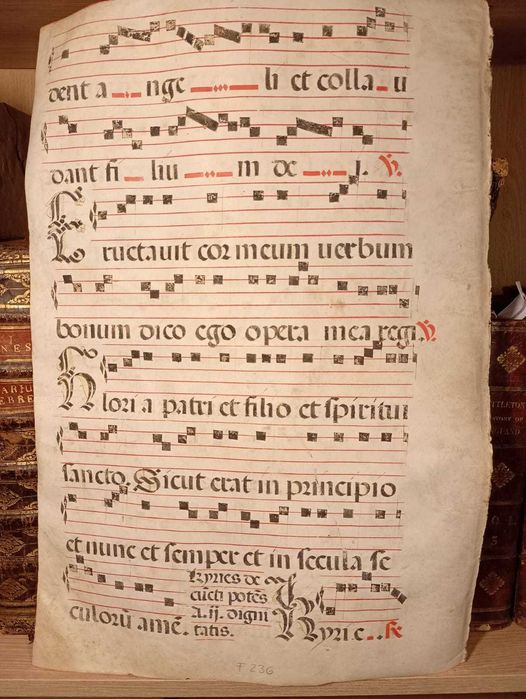 dent a nge li et colla u
dant fi liu m de j. ℣.
Eructauit cor meum uerbum
bonum dico ego opera mea regi ℣.
Gloria patri et filio et spiritui
sancto. Sicut erat in principio
et nunc et semper et in secula se
culorū amē. Kyries de
cūcti potēs
A. ij. digni
tatis. Kyrie
F 236